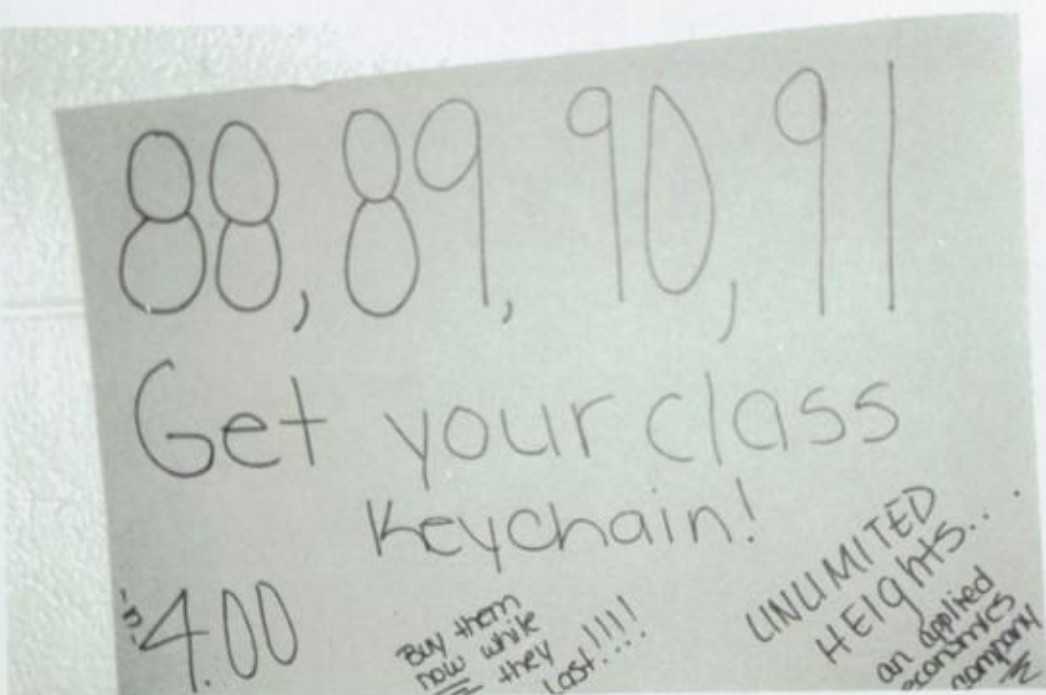 88, 89, 90, 91
Get your class
Keychain!
4.00
Buy them
now while
they
last!!!!
UNLIMITED
HEIghts...
an applied
economics
company